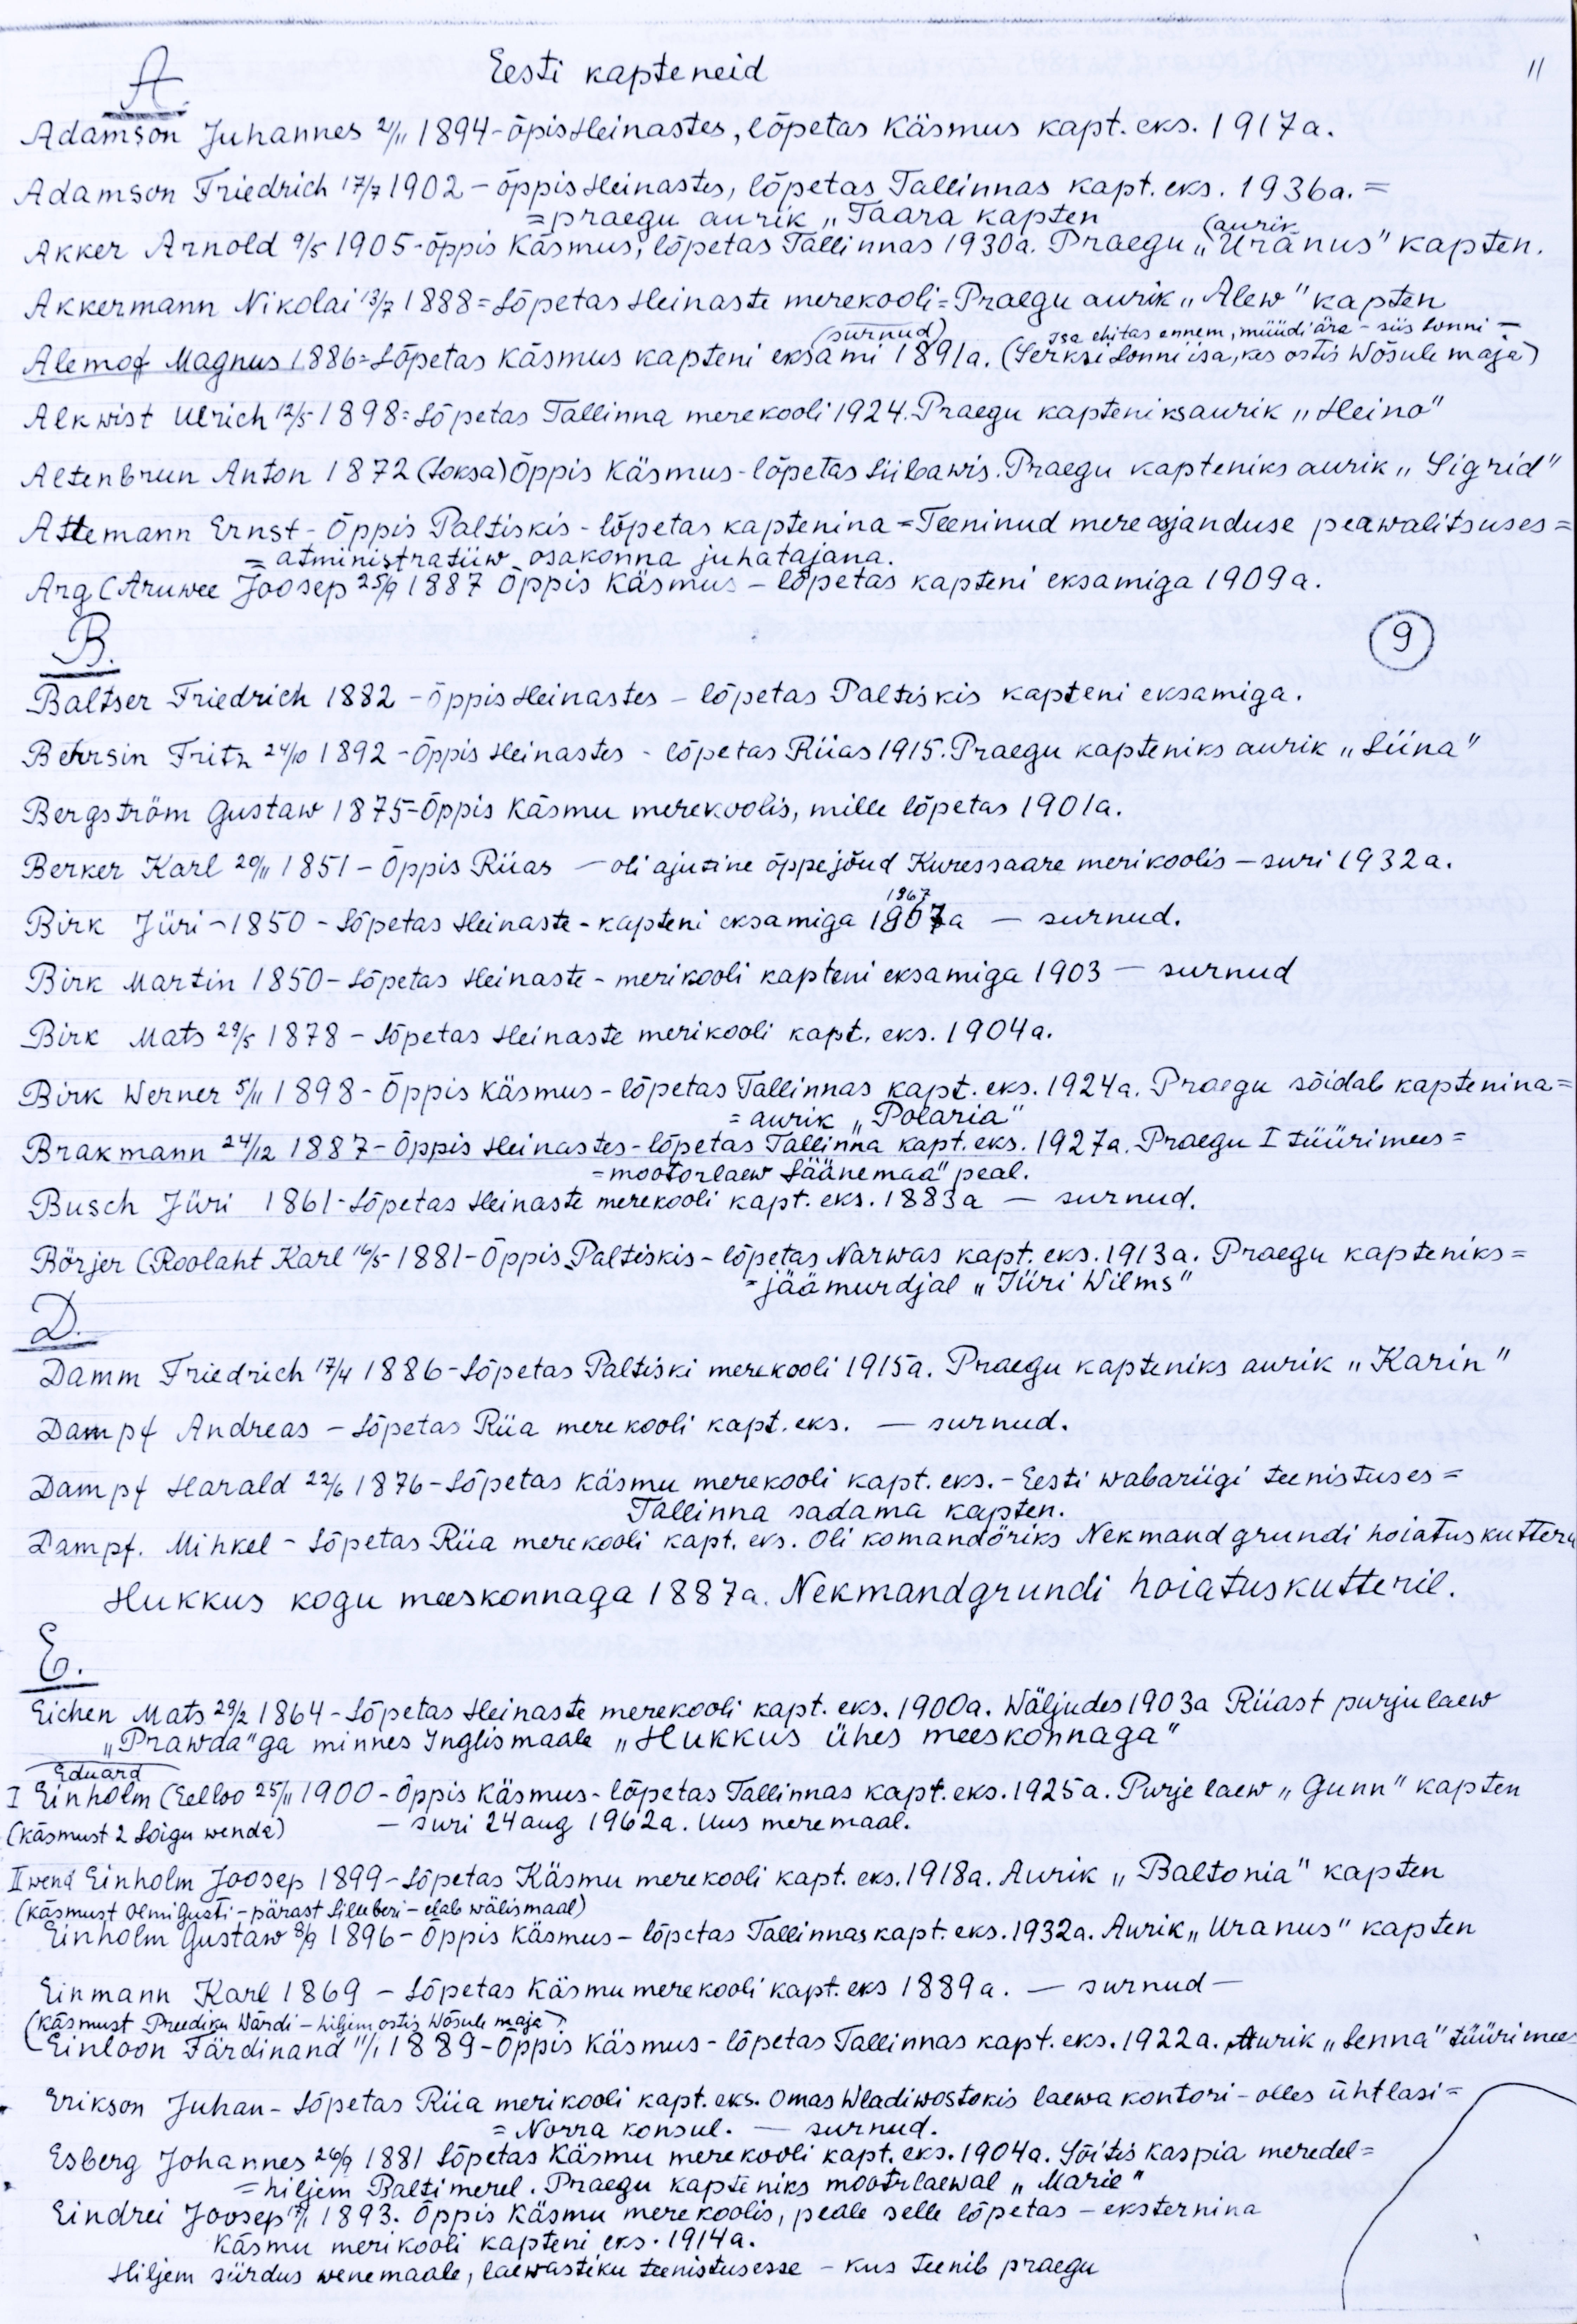 Eesti kapteneid
11
A.
Adamson Juhannes 2/11 1894 - õpis Heinastes, lõpetas Käsmus kapt. eks. 1917a.
Adamson Friedrich 17/7 1902 - õppis Heinastes, lõpetas Tallinnas kapt. eks. 1936a. =
= praegu aurik „Taara kapten
(aurik
Akker Arnold 9/5 1905 - õppis Käsmus, lõpetas Tallinnas 1930a. Praegu „Uranus" kapten.
Akkermann Nikolai 13/7 1888 = Lõpetas Heinaste merekooli = Praegu aurik „Alew" kapten
(surnud) isa ehitas ennem, müüdi ära - siis Lonni -
Alemof Magnus 1886 = Lõpetas Käsmus kapteni eksami 1891a. (Serksi Lonni isa, kes ostis Wõsule maja)
Alkwist Ulrich 12/5 1898 = Lõpetas Tallinna merekooli 1924. Praegu kapteniks aurik „Heino"
Altenbrun Anton 1872 (Loksa) Õppis Käsmus - lõpetas Liibawis. Praegu kapteniks aurik „Sigrid"
Attemann Ernst - Õppis Paltiskis - lõpetas kaptenina = Teeninud mereasjanduse peawalitsuses =
= atministratiiw osakonna juhatajana.
Arg (Aruwee Joosep 25/9 1887 Õppis Käsmus - lõpetas kapteni eksamiga 1909a.
B.
9
Baltser Friedrich 1882 - õppis Heinastes - lõpetas Paltiskis kapteni eksamiga.
Behrsin Fritz 24/10 1892 - Õppis Heinastes - lõpetas Riias 1915. Praegu kapteniks aurik „Liina"
Bergström Gustaw 1875 = Õppis Käsmu merekoolis, mille lõpetas 1901a.
Berker Karl 20/11 1851 - Õppis Riias - oli ajutine õppejõud Kuressaare merikoolis - suri 1932a.
1867
Birk Jüri - 1850 - Lõpetas Heinaste - kapteni eksamiga 1867a - surnud.
Birk Martin 1850 - Lõpetas Heinaste - merikooli kapteni eksamiga 1903 - surnud
Birk Mats 29/5 1878 - Lõpetas Heinaste merikooli kapt. eks. 1904a.
Birk Werner 5/11 1898 - Õppis Käsmus - lõpetas Tallinnas kapt. eks. 1924a. Praegu sõidab kaptenina =
= aurik „Polaria"
Brakmann 24/12 1887 - Õppis Heinastes - lõpetas Tallinna kapt. eks. 1927a. Praegu I tüürimees =
= mootorlaew Läänemaa" peal.
Busch Jüri 1861 - Lõpetas Heinaste merekooli kapt. eks. 1883a - surnud.
Börjer (Roolaht Karl 16/5 1881 - Õppis Paltiskis - lõpetas Narwas kapt. eks. 1913a. Praegu kapteniks =
= jäämurdjal „Jüri Wilms"
D.
Damm Friedrich 17/4 1886 - Lõpetas Paltiski merekooli 1915a. Praegu kapteniks aurik „Karin"
Dampf Andreas - Lõpetas Riia merekooli kapt. eks. - surnud.
Dampf Harald 22/6 1876 - Lõpetas Käsmu merekooli kapt. eks. - Eesti wabariigi teenistuses =
Tallinna sadama kapten.
Dampf. Mihkel - Lõpetas Riia merekooli kapt. eks. Oli komandöriks Nekmandgrundi hoiatuskutteri
Hukkus kogu meeskonnaga 1887a. Nekmandgrundi hoiatuskutteril.
E.
Eichen Mats 29/2 1864 - Lõpetas Heinaste merekooli kapt. eks. 1900a. Wäljudes 1903a Riiast purjulaew
„Prawda"ga minnes Inglismaale „Hukkus ühes meeskonnaga"
Eduard
I Einholm (Eelloo 25/11 1900 - Õppis Käsmus - lõpetas Tallinnas kapt. eks. 1925a. Purje laew „Gunn" kapten
(käsmust 2 Loigu wenda) - suri 24 aug 1962a. Uus meremaal.
II wend Einholm Joosep 1899 - Lõpetas Käsmu merekooli kapt. eks. 1918a. Aurik „Baltonia" kapten
(käsmust Olmi Gusti - pärast Lilleberi - elab wälismaal)
Einholm Gustaw 8/9 1896 - Õppis Käsmus - lõpetas Tallinnas kapt. eks. 1932a. Aurik „Uranus" kapten
Einmann Karl 1869 - Lõpetas Käsmu merekooli kapt. eks 1889a. - surnud -
(käsmust Preediku Wärdi - hiljem ostis Wõsule maja)
Einloon Färdinand 11/1 1889 - Õppis Käsmus - lõpetas Tallinnas kapt. eks. 1922a. Aurik „Lenna" tüürimees
Erikson Juhan - Lõpetas Riia merikooli kapt. eks. Omas Wladiwostokis laewa kontori - olles ühtlasi =
= Norra konsul. - surnud.
Esberg Johannes 26/9 1881 Lõpetas Käsmu merekooli kapt. eks. 1904a. Sõitis Kaspia meredel =
= hiljem Baltimerel. Praegu kapteniks mootrlaewal „Marie"
Eindrei Joosep 17/1 1893. Õppis Käsmu merekoolis, peale selle lõpetas - eksternina
Käsmu merikooli kapteni eks. 1914a.
Hiljem siirdus wenemaale, laewastiku teenistusesse - kus teenib praegu